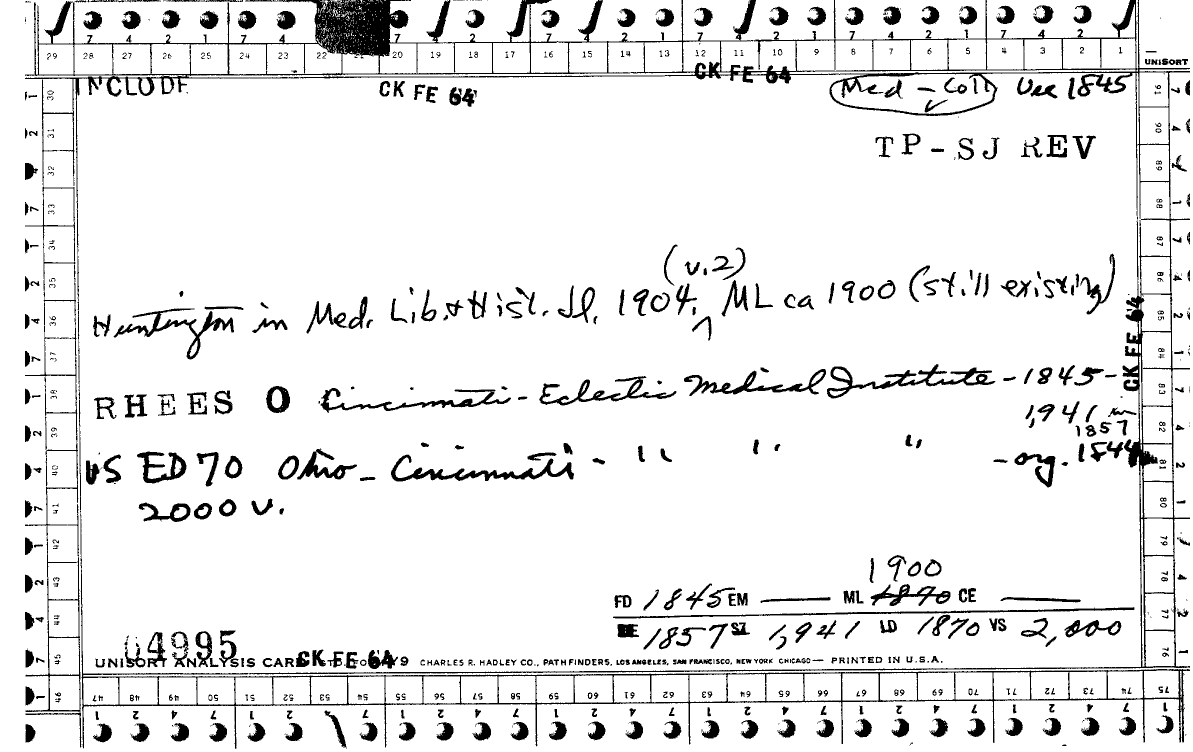 7 4 2 1 7 4 7 4 2 1 7 4 2 1 7 4 2 1 7 4 2 1
29 28 27 26 25 24 23 22 21 20 19 18 17 16 15 14 13 12 11 10 9 8 7 6 5 4 3 2 1
UNISORT
INCLUDE CK FE 64 CK FE 64 Med - Coll Use 1845
TP-SJ REV
(v.2)
Huntington in Med. Lib. & Hist. Jl. 1904. ML ca 1900 (still existing)
CK FE 64
RHEES O Cincinnati - Eclectic Medical Institute - 1845-
1,941 in
1857
US ED 70 Ohio - Cincinnati - " " " - org. 1844
2000 v.
1900
FD 1845 EM ML 1870 CE
DE 1857 SZ 1,941 LD 1870 VS 2,000
04995
UNISORT ANALYSIS CARD CK FE 64 9 CHARLES R. HADLEY CO., PATHFINDERS, LOS ANGELES, SAN FRANCISCO, NEW YORK CHICAGO — PRINTED IN U.S.A.
30 31 32 33 34 35 36 37 38 39 40 41 42 43 44 45 46
91 90 89 88 87 86 85 84 83 82 81 80 79 78 77 76 75
47 48 49 50 51 52 53 54 55 56 57 58 59 60 61 62 63 64 65 66 67 68 69 70 71 72 73 74